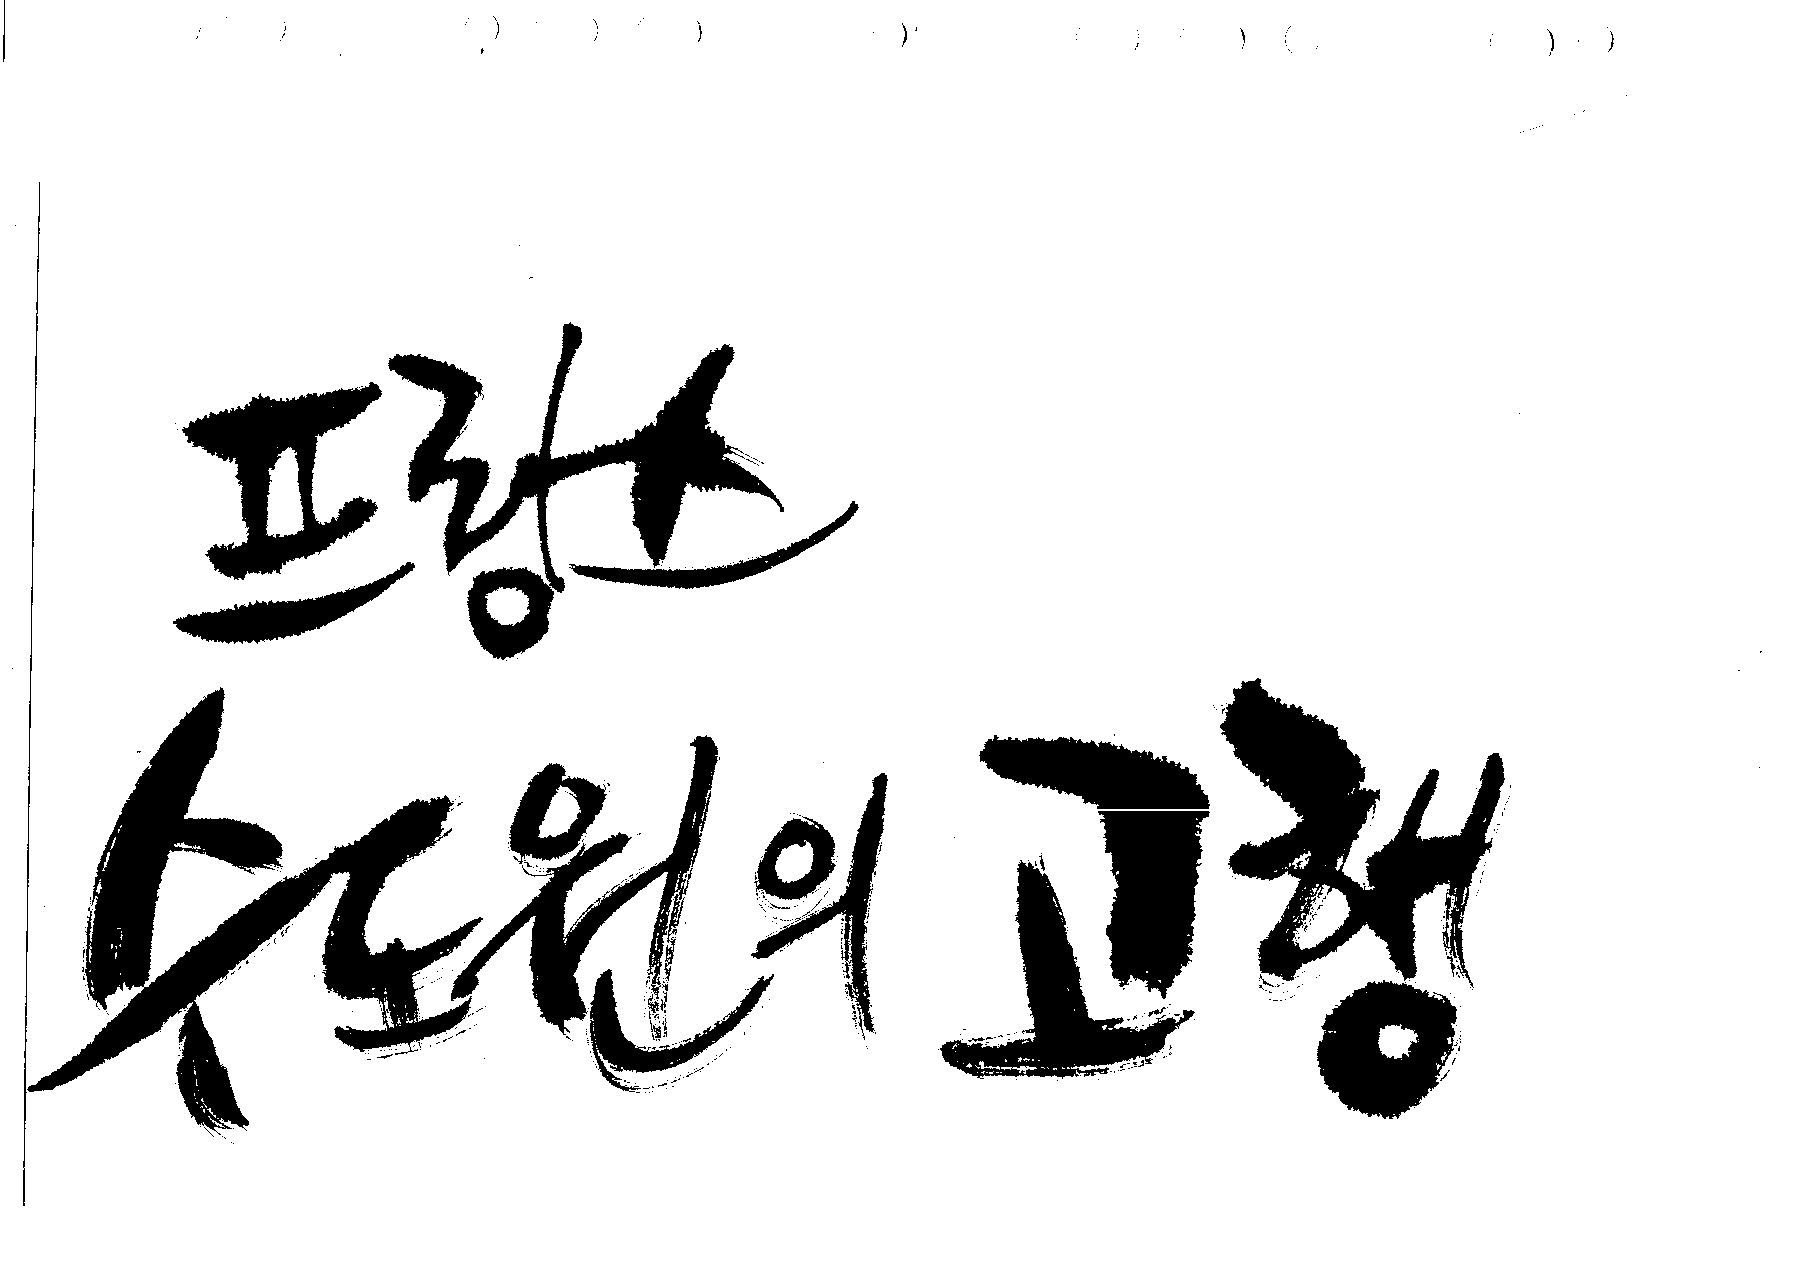 프랑스
수도원의 고행